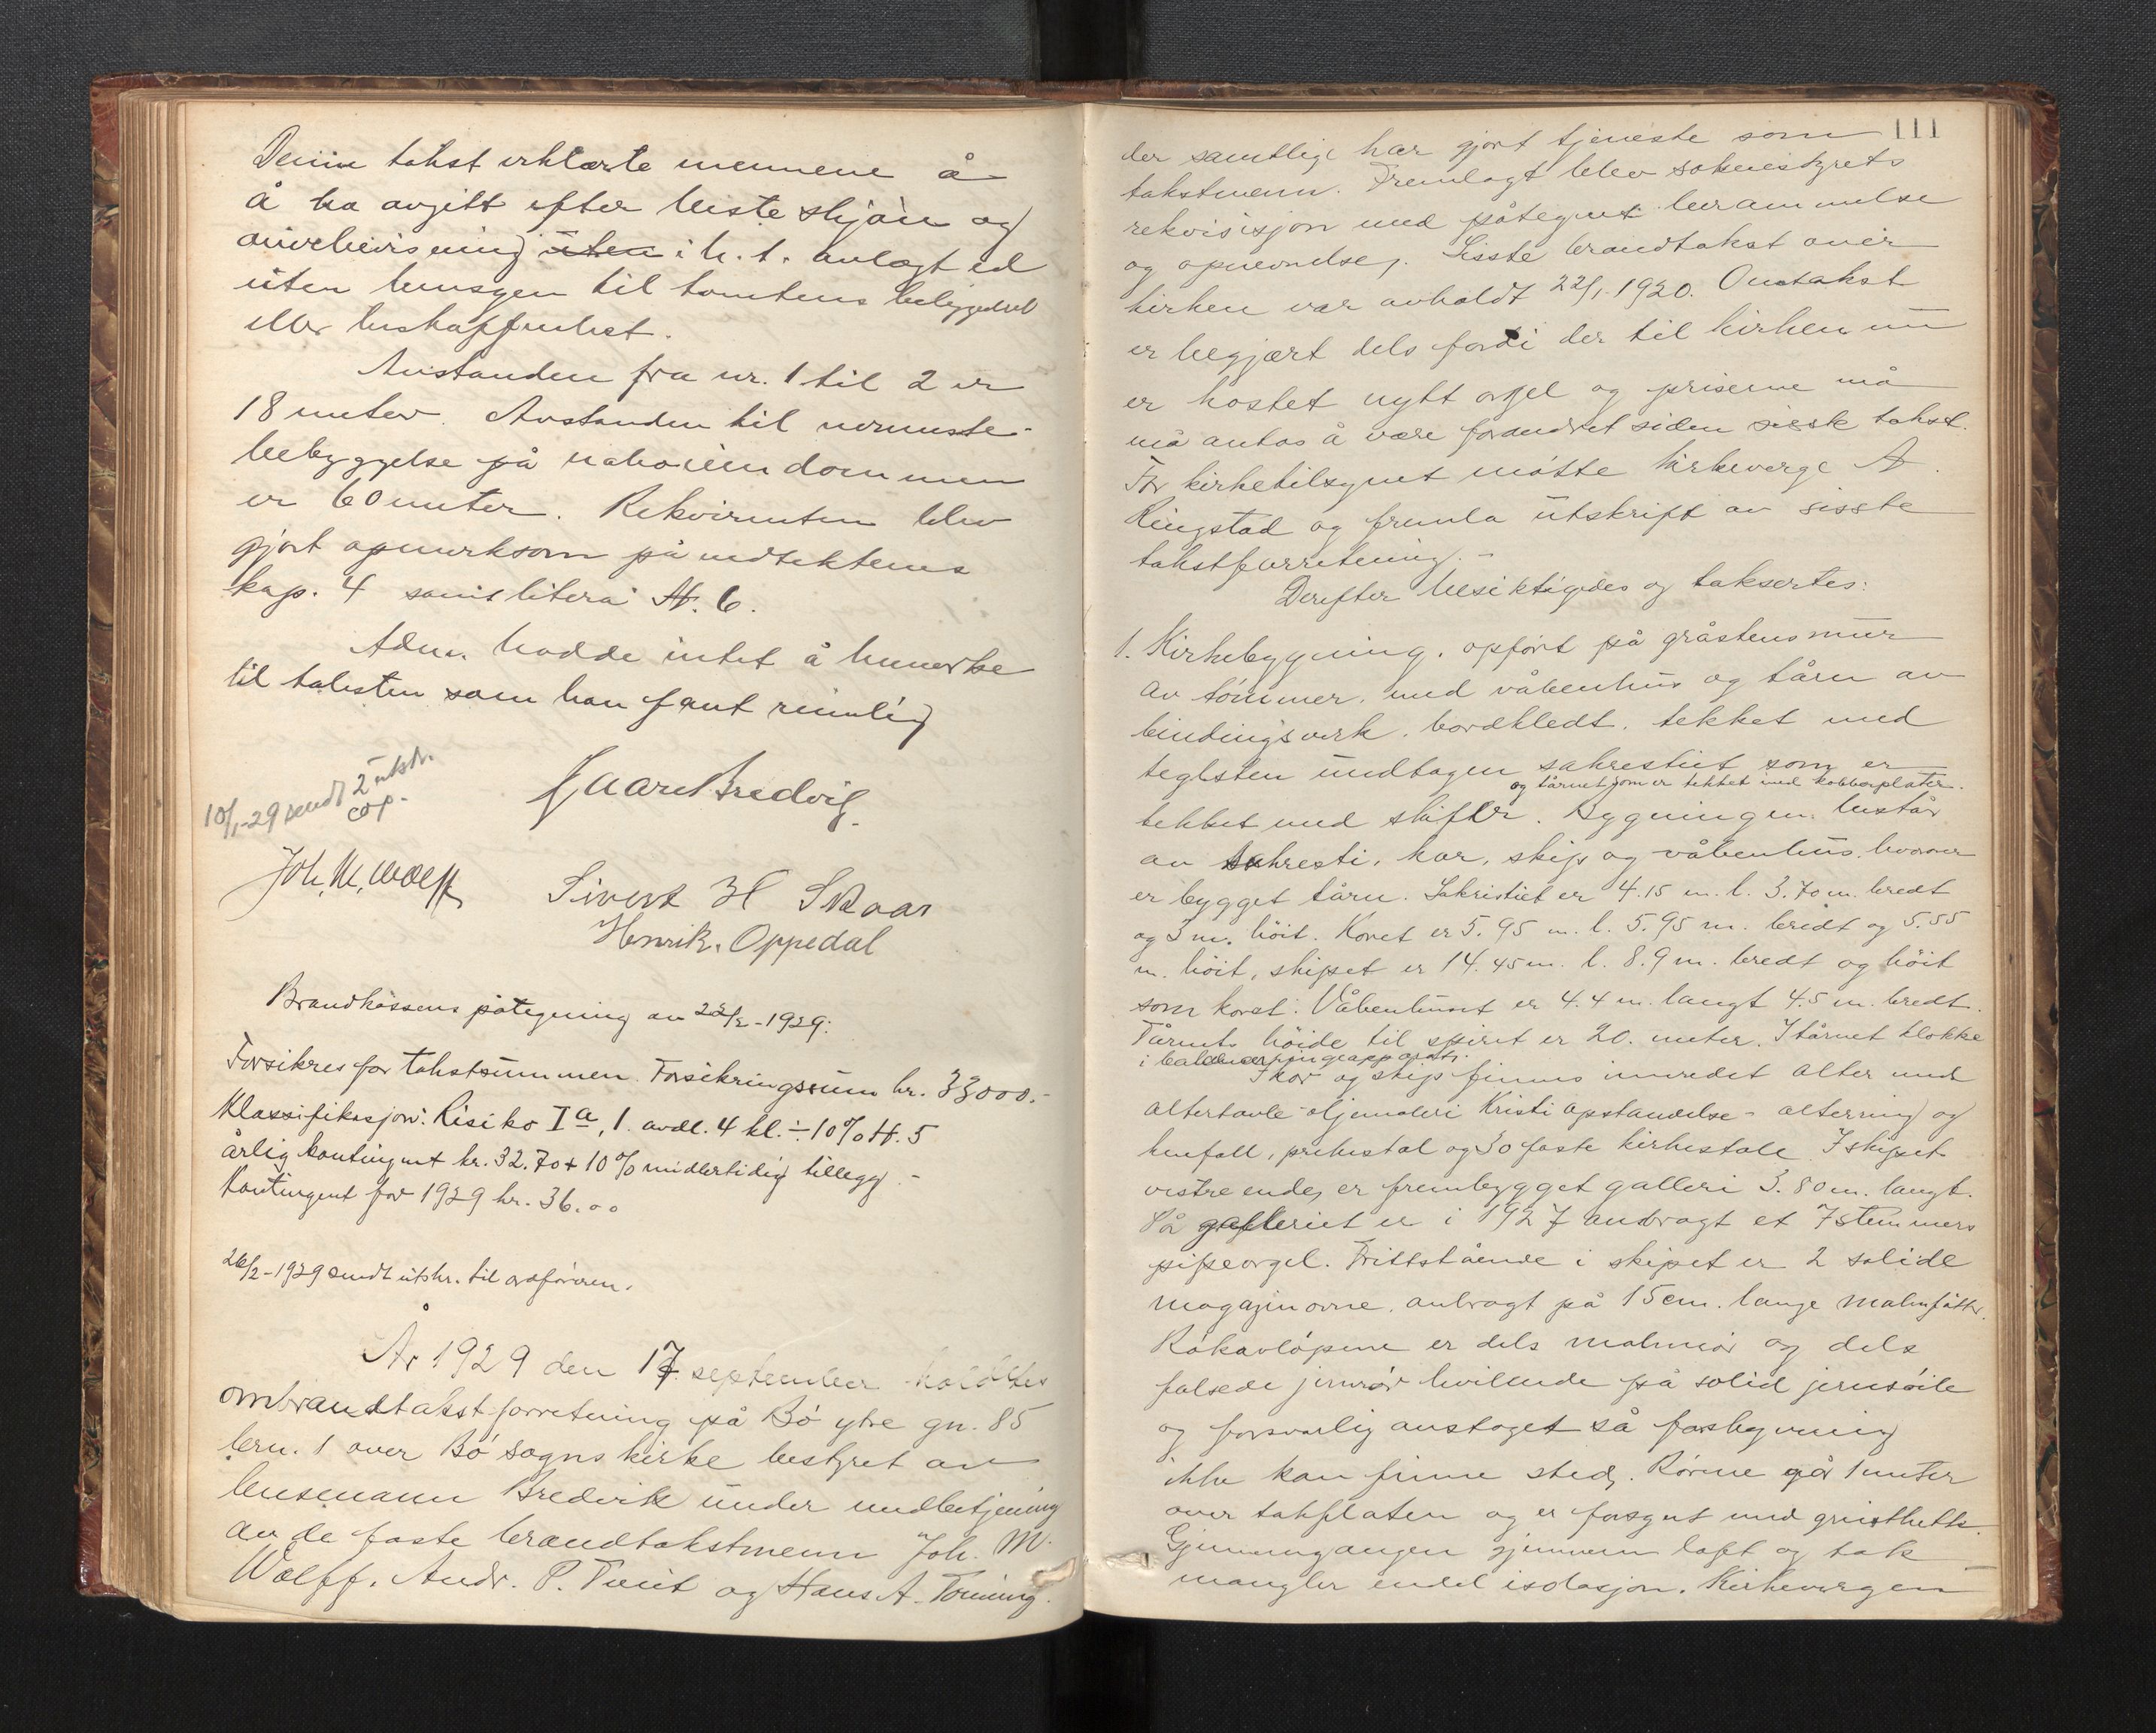 Denne takst erklærte mennene å
å ha avgitt efter beste skjøn og
overbevisning uten i h. t. avlagt ed
uten hensyn til tomtens beliggenhet
eller beskaffenhet.
Avstanden fra nr. 1 til 2 er
18 meter. Avstanden til nærmeste
bebyggelse på naboeiendommen
er 60 meter. Rekvirenten blev
gjort opmerksom på vedtektenes
kap. 4 samt litera H. 6.
Adm. hadde intet å bemerke
til taksten som han fant rimelig
10/1-29 sendt 2 utskr.
cop.
Kaare Bredvik
Joh. M. Wolff
Sivert H Skaar
Henrik. Oppedal
Brandkassens påtegning av 22/2-1929:
Forsikres for takstsummen. Forsikringssum kr. 33000.-
Klassifikasjon: Risiko I a, 1. avdl. 4 kl. ÷ 10% H. 5
årlig kontingent kr. 32.70 + 10% midlertidig tillegg.-
Kontingent for 1929 kr. 36.00
26/2-1929 sendt utskr. til ordføreren.
År 1929 den 17 september holdtes
ombrandtakstforretning på Bø ytre gn. 85
brn. 1 over Bø sogns kirke bestyret av
lensmann Bredvik under medbetjening
av de faste brandtakstmenn Joh. M.
Wolff, Andr. P. Tveit og Hans A.
111
der samtlige har gjort tjeneste som
takstmenn. Fremlagt blev soknestyrets
rekvisisjon med påtegnet berammelse
og opnevnelse. Sisste brandtakst over
kirken var avholdt 22/1. 1920. Omtakst
er begjært dels fordi der til kirken nu
er kostet nytt orgel og priserne må
må antas å være forandret siden sisste takst.
For kirketilsynet møtte kirkeverge A.
Ringstad og fremla utskrift av sisste
takstforretning.-
Derefter besiktigedes og taksertes:
1. Kirkebygning, opført på gråstensmur
av tømmer, med våbenhus og tårn av
bindingsverk, bordkledt, tekket med
teglsten undtagen sakrestiet som er
og tårnet som er tekket med kobberplater.
tekket med skifer. Bygningen består
av sakresti, kor, skip og våbenhus, hvorover
er bygget tårn. Sakristiet er 4.15 m. l. 3.70 m. bredt
og 3 m. höit. Koret er 5.95 m. l. 5.95 m. bredt og 5.55
m. höit, skipet er 14.45 m. l. 8.9 m. bredt og höit
som koret. Våbenhuset er 4.4 m. langt 4.5 m. bredt.
Tårnets höide til spiret er 20. meter. I tårnet klokke
i balancerringeapparat.
I kor og skip finnes innredet alter med
altertavle - oljemaleri Kristi opstandelse - altering og
knefall, prekestol og 30 faste kirkestole. I skipet
vestre ende, er frembygget galleri 3.80 m. langt.
På galleriet er i 1927 anbragt et 7 stemmers
pipeorgel. Frittstående i skipet er 2 solide
magazinovne, anbragt på 15 cm. lange malmføtter.
Røkavløpene er dels malmrør og dels
falsede jernrør hvilende på solid jernsøile
og forsvarlig avstaget så forskyvning
ikke kan finne sted. Rørene går 1 meter
over takflaten og er forsynt med gnisthette.
Gjennemgangen gjennem loft og tak
mangler endel isolasjon. Kirkevergen